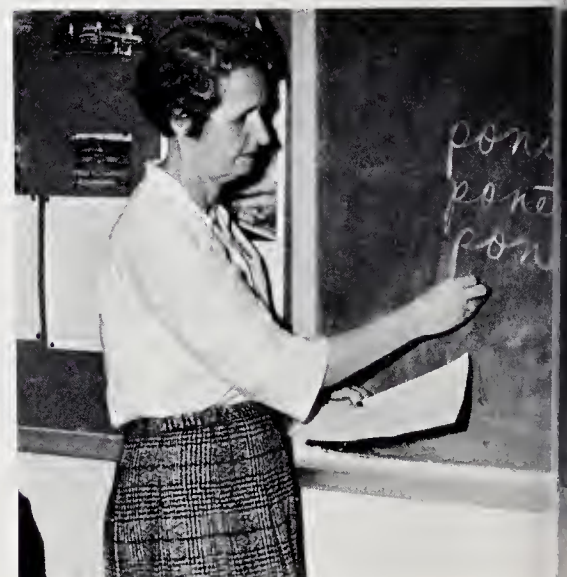 pon
ponē
pon